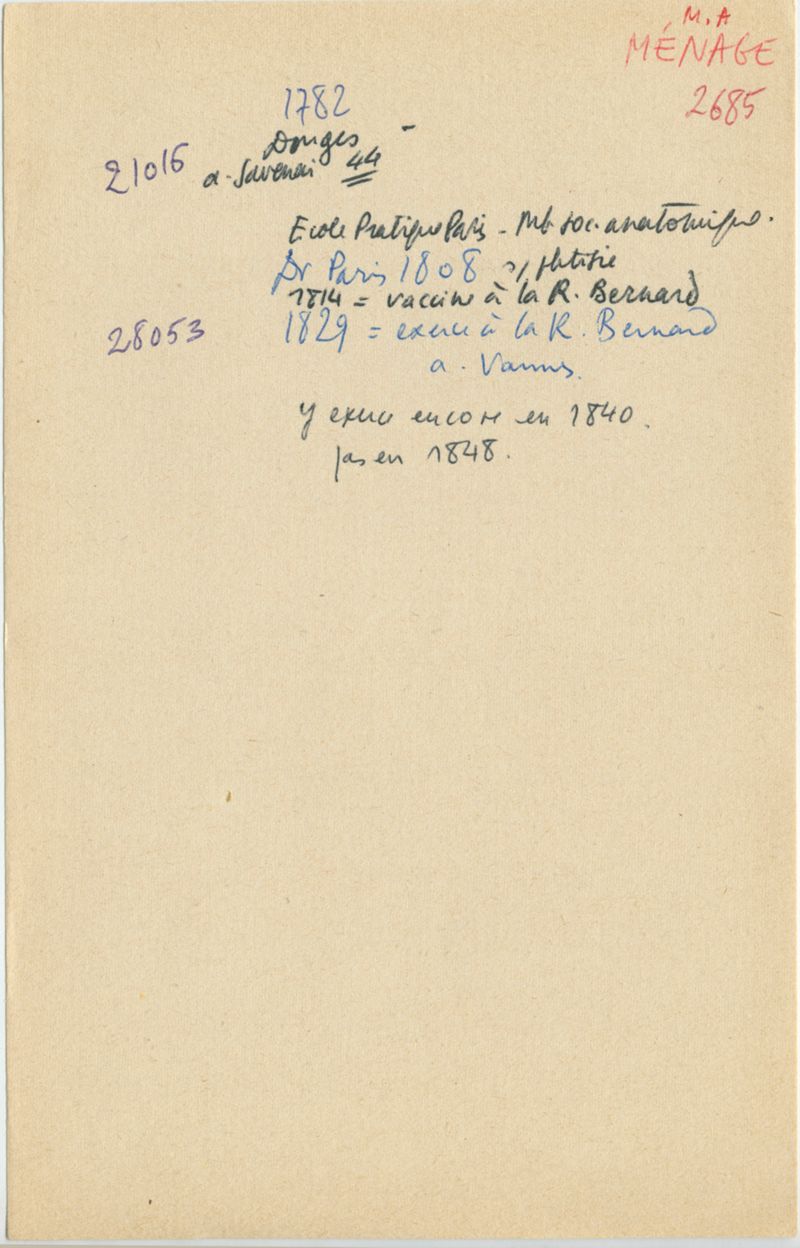 M. A
MÉNAGE
2685
1782
Donges -
21016 a. Savenai 44
Ecole Pratique Paris - Mb soc. anatomique.
Dr Paris 1808 s/phtisie
1814 = vaccine à la R. Bernard
28053 1829 = exerce à la R. Bernard
a. Vannes.
y exerce encore en 1840.
pas en 1848.